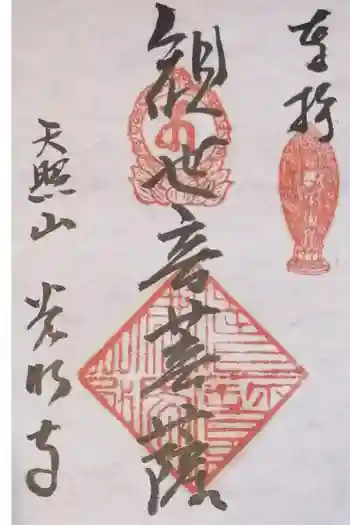 奉拝
観世音菩薩
天照山
光明寺